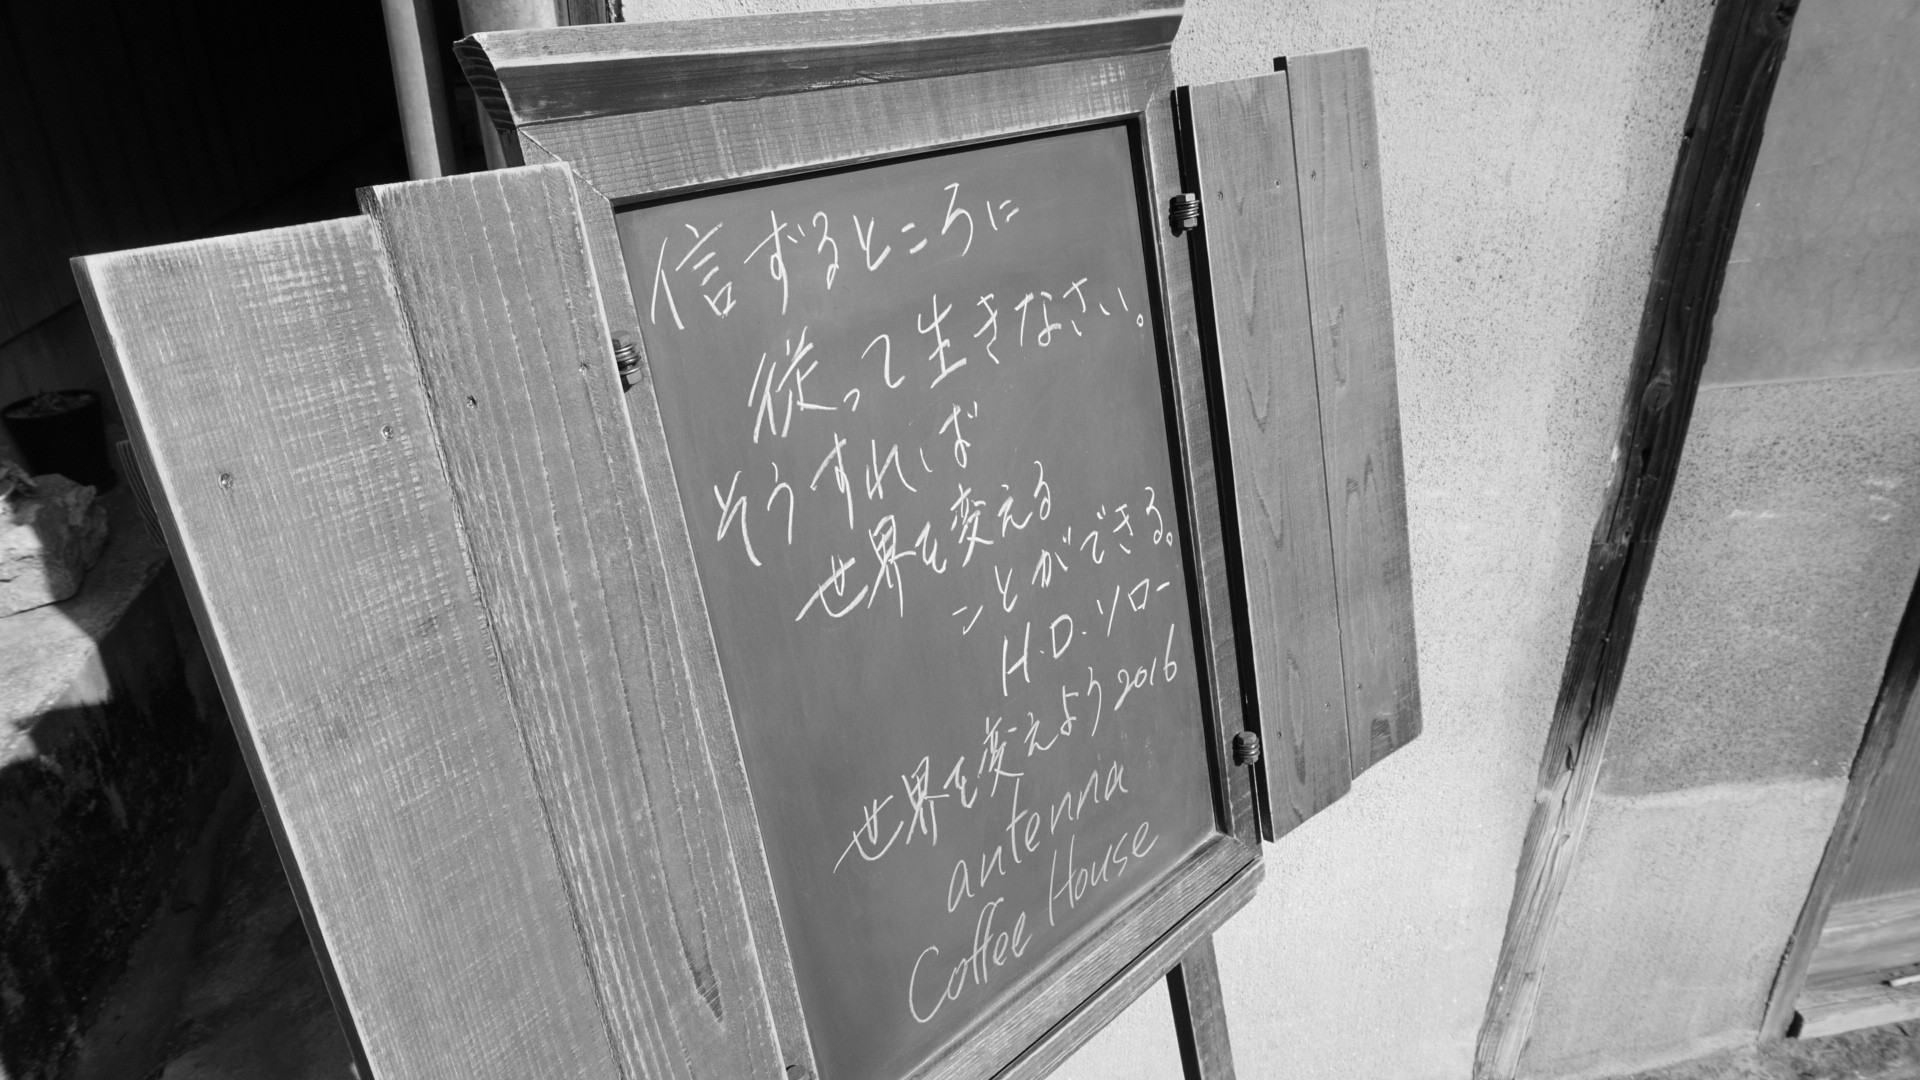 信ずるところに
従って生きなさい。
そうすれば
世界を変える
ことができる。
H.D.ソロー
世界を変えよう2016
antenna
Coffee House